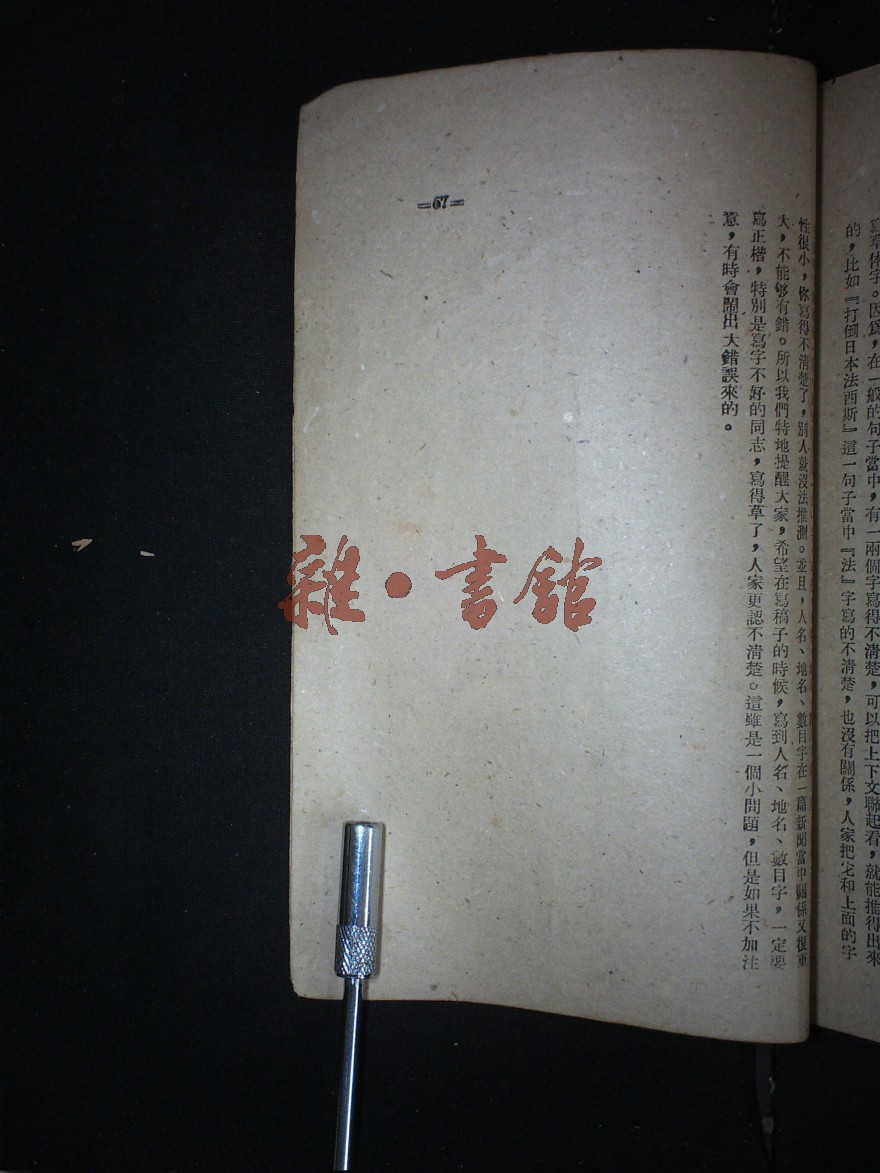 寫草体字。因爲，在一般的句子當中，有一兩個字寫得不清楚，可以把上下文聯起看，就能推得出來
的，比如『打倒日本法西斯』這一句子當中『法』字寫的不清楚，也沒有關係，人家把它和上面的字
性很小，你寫得不清楚了，別人就沒法推測。並且，人名、地名、數目字在一篇新聞當中關係又很重
大，不能够有錯。所以我們特地提醒大家，希望在寫稿子的時候，寫到人名、地名、數目字，一定要
寫正楷，特別是寫字不好的同志，寫得草了，人家更認不清楚。這雖是一個小問題，但是如果不加注
意，有時會鬧出大錯誤來的。
=57=
雜·書館